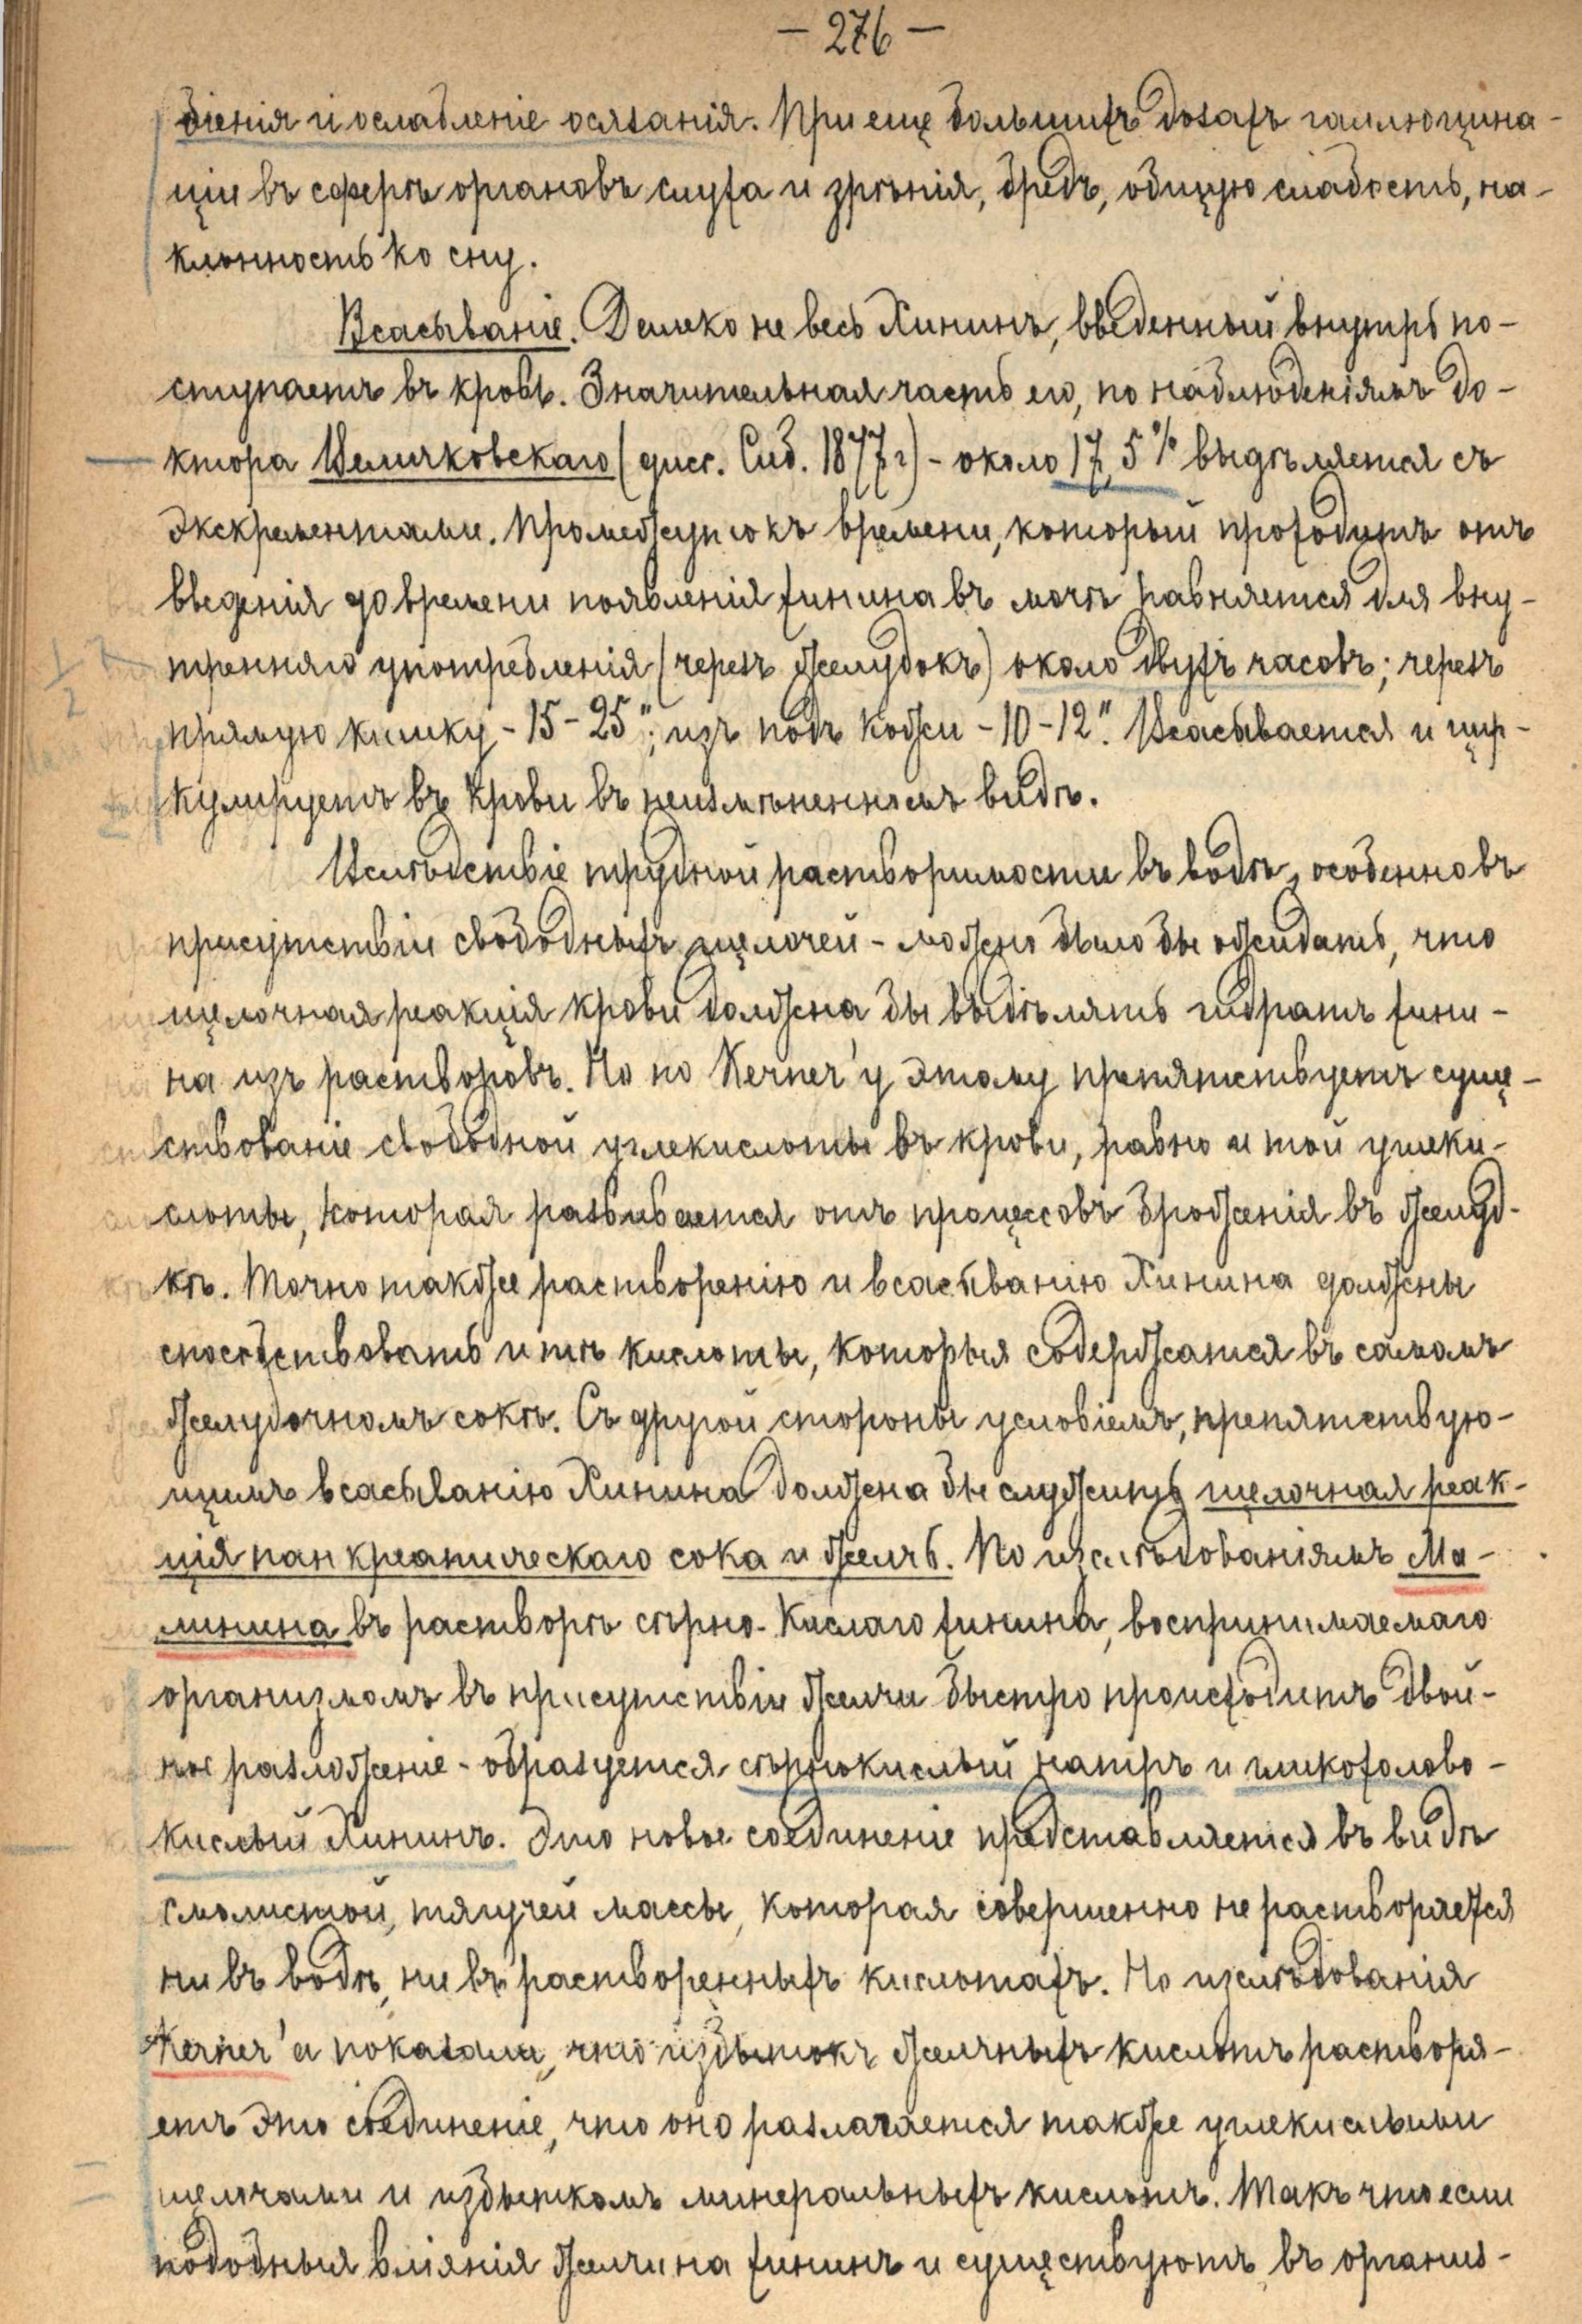 — 276 —
бiенiя и ослабленiе осязанiя. При еще большихъ дозахъ галлюцина-
цiи въ сферѣ органовъ слуха и зрѣнiя, бредъ, общую слабость, на-
клонность ко сну.
Всасыванiе. Далеко не весь Хининъ, введенный внутрь по-
ступаетъ въ кровь. Значительная часть его, по наблюденiямъ до-
ктора Величковскаго (дисс. Спб. 1877 г) - около 17,5% выдѣляется съ
экскрементами. Промежутокъ времени, который проходитъ отъ
введенiя до времени появленiя хинина въ мочѣ равняется для вну-
тренняго употребленiя (черезъ желудокъ) около двухъ часовъ; черезъ
прямую кишку - 15 - 25"; изъ подъ кожи - 10 - 12". Всасывается и цир-
кулируетъ въ крови въ неизмѣненномъ видѣ.
Вслѣдствiе трудной растворимости въ водѣ, особенно въ
присутствiи свободныхъ щелочей - можно было бы ожидать, что
щелочная реакцiя крови должна бы выдѣлять гидратъ хини-
на изъ растворовъ. Но по Kerner'у этому препятствуетъ суще-
ствованiе свободной углекислоты въ крови, равно и той углеки-
слоты, которая развивается отъ процессовъ броженiя въ желуд-
кѣ. Точно также растворенiю и всасыванiю Хинина должны
способствовать и тѣ кислоты, которыя содержатся въ самомъ
желудочномъ сокѣ. Съ другой стороны условiемъ, препятствую-
щимъ всасыванiю Хинина должна бы служить щелочная реак-
цiя панкреатическаго сока и желчь. По изслѣдованiямъ Ма-
линина въ растворѣ сѣрно-кислаго хинина, воспринимаемаго
организмомъ въ присутствiи желчи быстро происходитъ двой-
ное разложенiе - образуется сѣрнокислый натръ и гликохолово-
кислый Хининъ. Это новое соединенiе представляется въ видѣ
смолистой, тягучей массы, которая совершенно не растворяется
ни въ водѣ, ни въ растворенныхъ кислотахъ. Но изслѣдованiя
Kerner'а показали, что избытокъ желчныхъ кислотъ растворя-
етъ это соединенiе, что оно разлагается также углекислыми
щелочами и избыткомъ минеральныхъ кислотъ. Такъ что если
подобныя влiянiя желчи на хининъ и существуютъ въ организ-